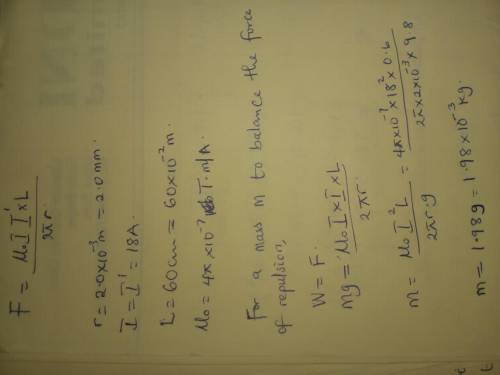 F = μ₀ I I' × L / 2πr
r = 2.0×10⁻³m = 2.0mm.
I = I' = 18A.
L = 60cm = 60×10⁻² m.
μ₀ = 4π×10⁻⁷ T·m/A.
For a mass m to balance the force
of repulsion,
W = F.
mg = μ₀ I × I × L / 2πr.
m = μ₀ I² L / 2πr·g = 4π×10⁻⁷ × 18² × 0.6 / 2π×2×10⁻³ × 9.8
m = 1.98g = 1.98×10⁻³ kg.